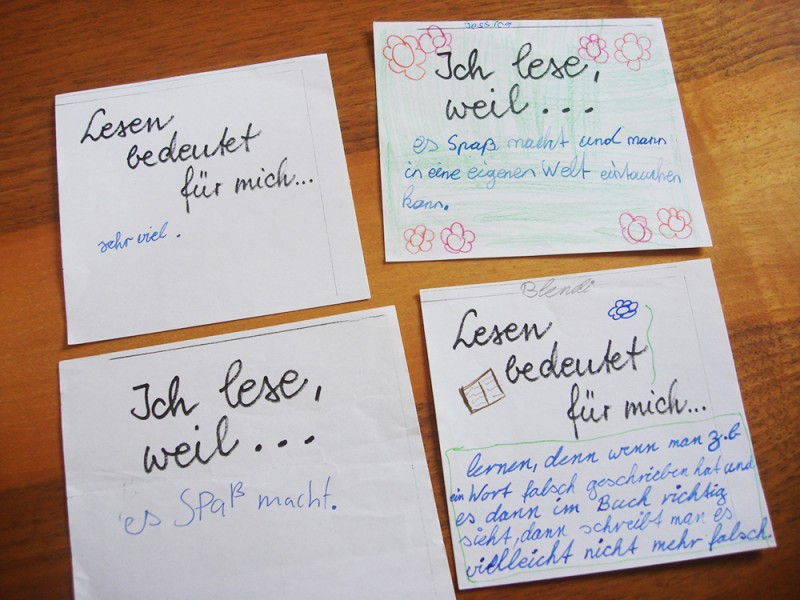 Lesen
bedeutet
für mich...
sehr viel.
Jessica
Ich lese,
weil...
es Spaß macht und mann
in eine eigenen Welt eintauchen
kann.
Ich lese,
weil...
es Spaß macht.
Blendi
Lesen
bedeutet
für mich...
lernen, denn wenn man z.b
ein Wort falsch geschrieben hat und
es dann im Buch richtig
sieht, dann schreibt man es
vielleicht nicht mehr falsch.